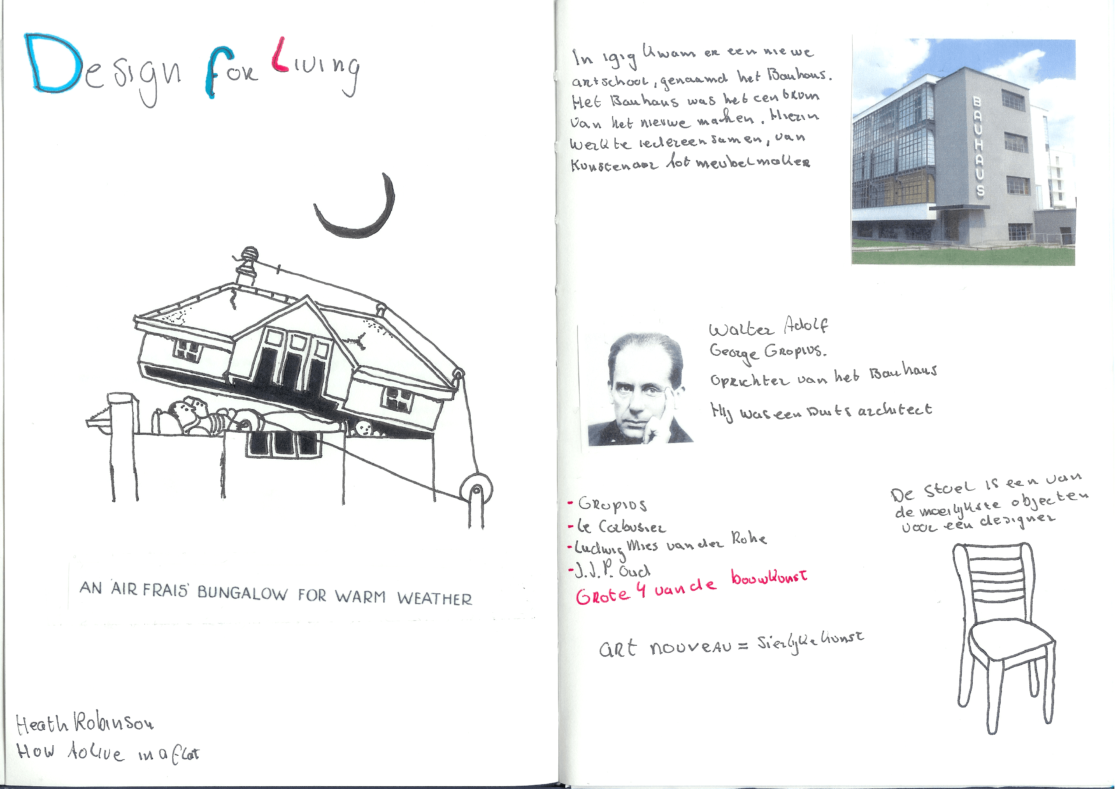 Design for Living
AN 'AIR FRAIS' BUNGALOW FOR WARM WEATHER
Heath Robinson
How to live in a flat
In 1919 kwam er een nieuwe
artschool, genaamd het Bauhaus.
Het Bauhaus was het centrum
van het nieuwe maken. Hierin
werkte iedereen samen, van
kunstenaar tot meubelmaker
BAUHAUS
Walter Adolf
George Gropius.
Oprichter van het Bauhaus
Hij was een Duits architect
- Gropius
- Le Corbusier
- Ludwig Mies van der Rohe
- J.J.P. Oud
Grote 4 van de bouwkunst
De stoel is een van
de moeilijkste objecten
voor een designer
art nouveau = sierlijke kunst